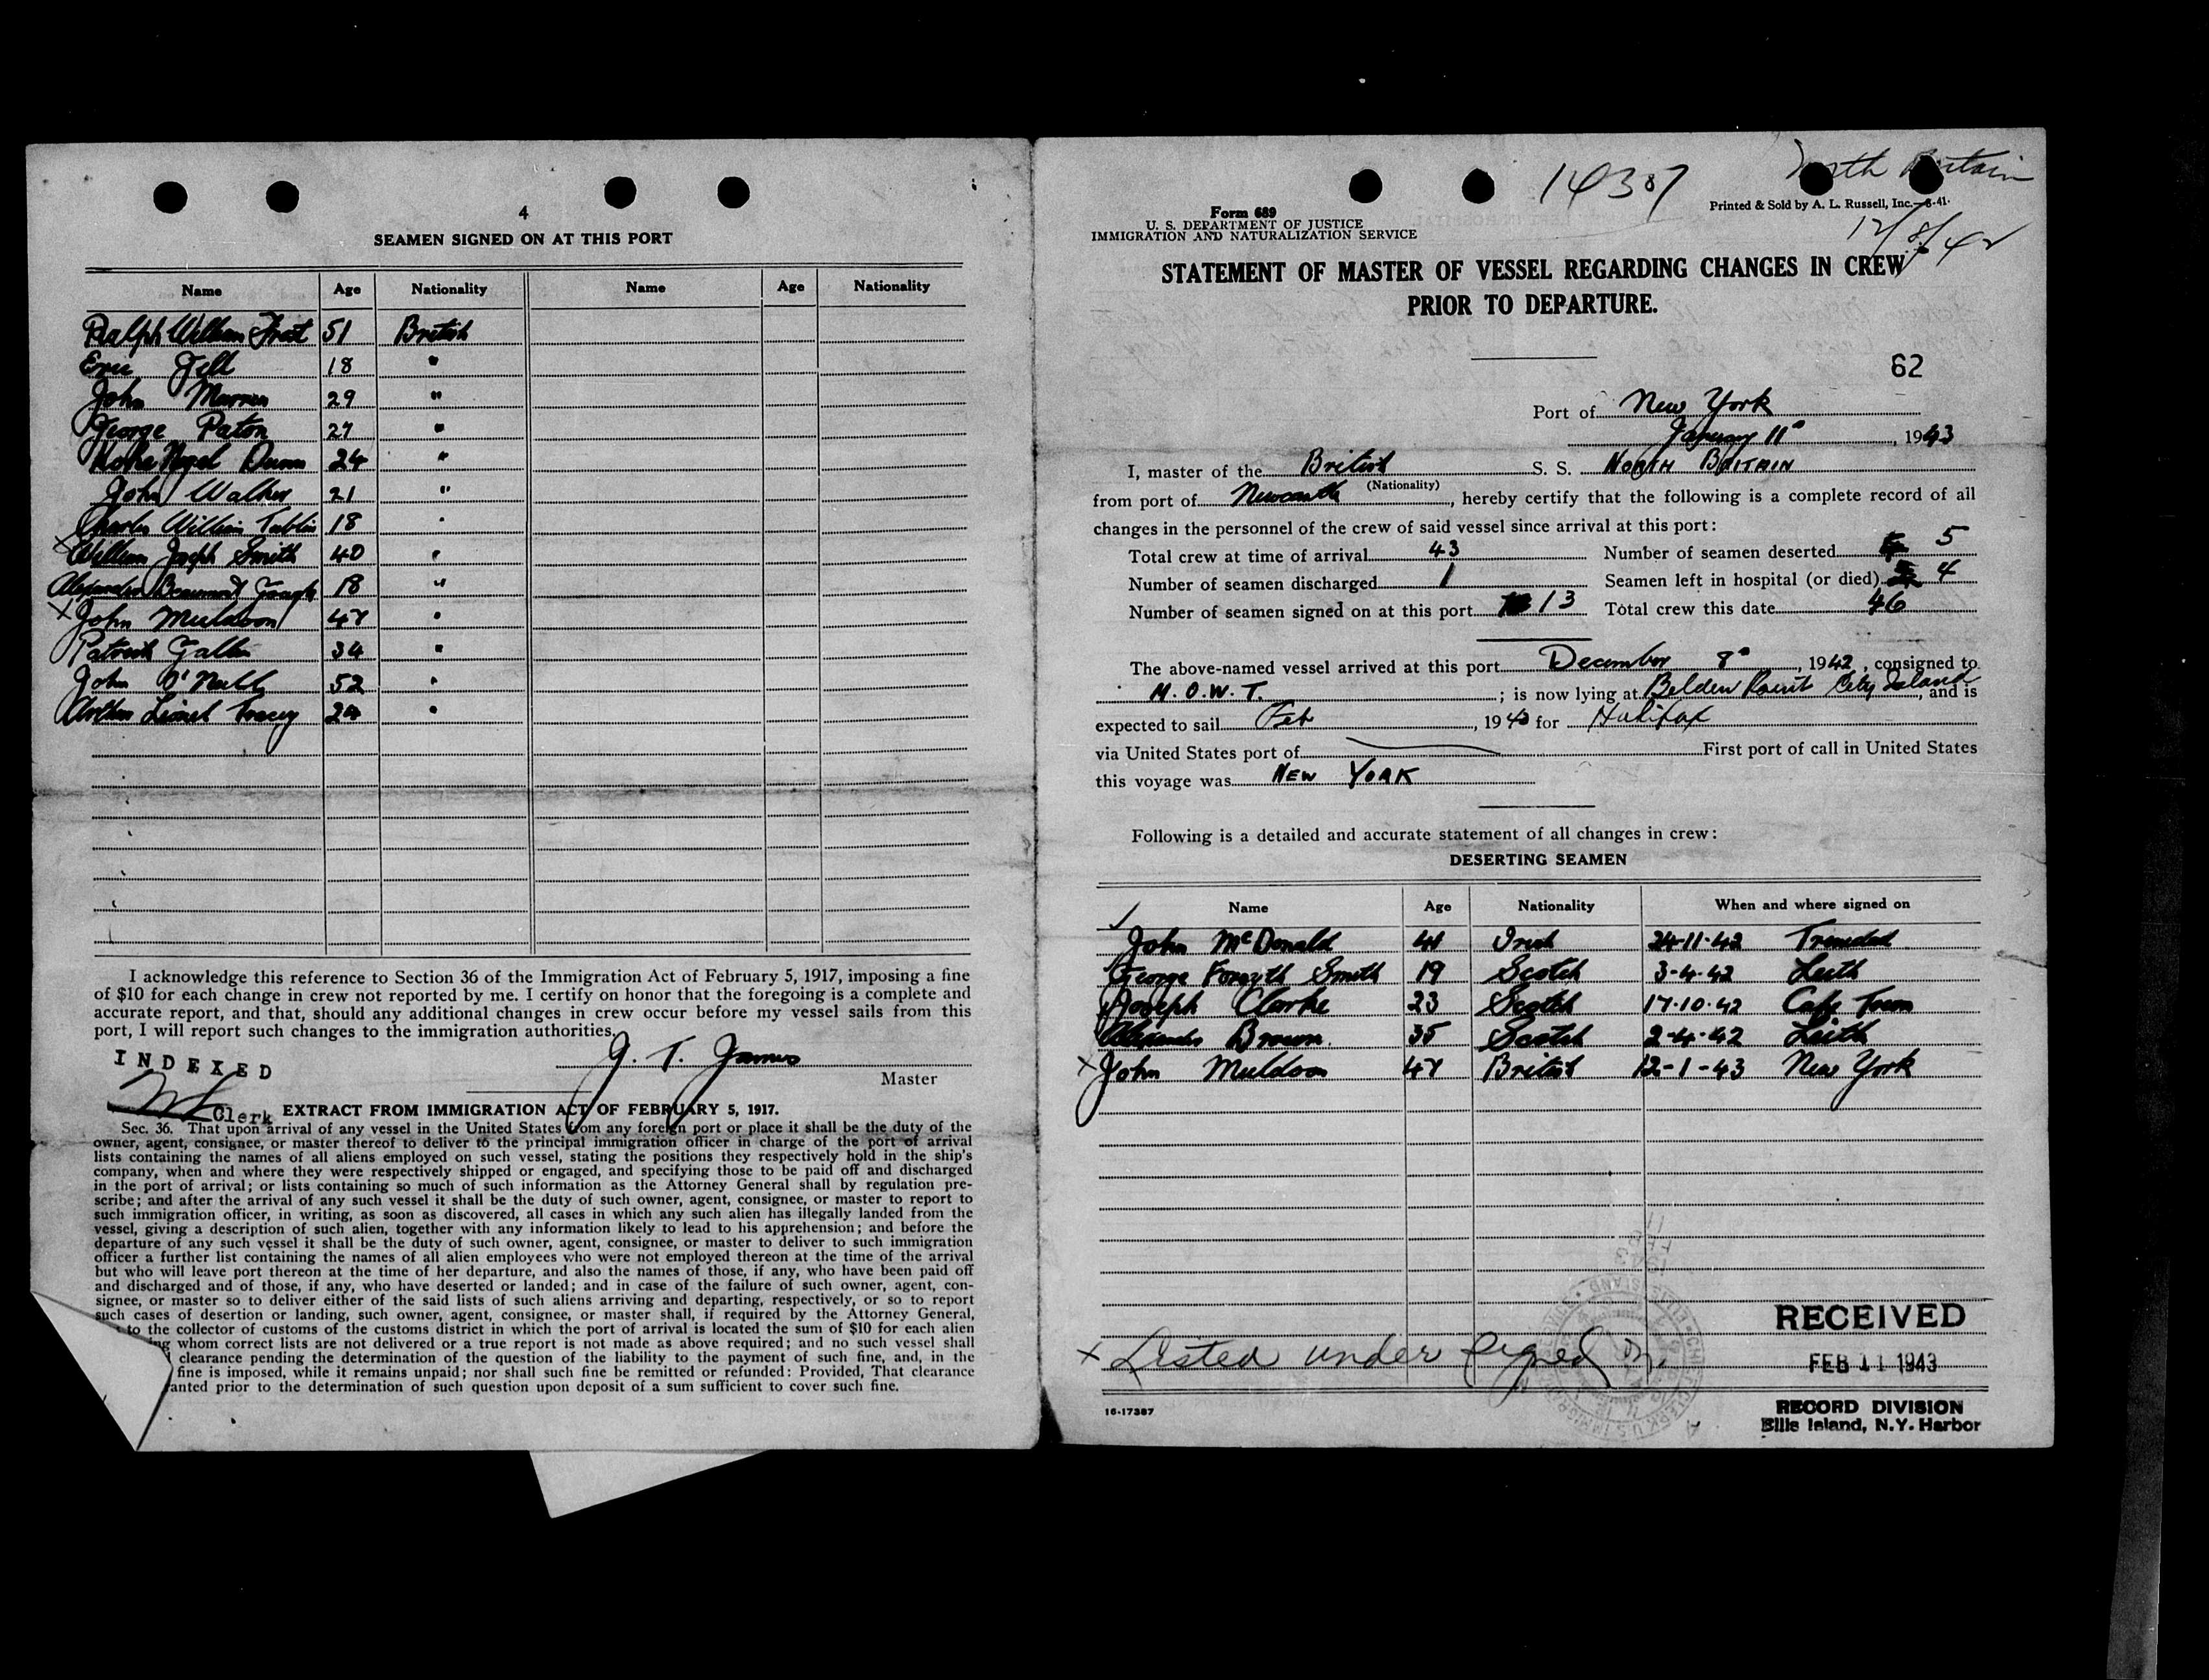 4
SEAMEN SIGNED ON AT THIS PORT
Name Age Nationality Name Age Nationality
Ralph William 51 British
Eric Fell 18 "
John 29 "
George Paton 27 "
Dunn 24 "
John Walker 21 "
Charles William 18 "
x William Joseph Smith 40 "
Alexander Beaumont 18 "
x John Muldoon 47 "
Patrick 34 "
John O'Neill 52 "
Arthur Lionel Tracey 24 "
I acknowledge this reference to Section 36 of the Immigration Act of February 5, 1917, imposing a fine
of $10 for each change in crew not reported by me. I certify on honor that the foregoing is a complete and
accurate report, and that, should any additional changes in crew occur before my vessel sails from this
port, I will report such changes to the immigration authorities.
J. T. James
Master
INDEXED
Clerk
EXTRACT FROM IMMIGRATION ACT OF FEBRUARY 5, 1917.
Sec. 36. That upon arrival of any vessel in the United States from any foreign port or place it shall be the duty of the
owner, agent, consignee, or master thereof to deliver to the principal immigration officer in charge of the port of arrival
lists containing the names of all aliens employed on such vessel, stating the positions they respectively hold in the ship's
company, when and where they were respectively shipped or engaged, and specifying those to be paid off and discharged
in the port of arrival; or lists containing so much of such information as the Attorney General shall by regulation pre-
scribe; and after the arrival of any such vessel it shall be the duty of such owner, agent, consignee, or master to report to
such immigration officer, in writing, as soon as discovered, all cases in which any such alien has illegally landed from the
vessel, giving a description of such alien, together with any information likely to lead to his apprehension; and before the
departure of any such vessel it shall be the duty of such owner, agent, consignee, or master to deliver to such immigration
officer a further list containing the names of all alien employees who were not employed thereon at the time of the arrival
but who will leave port thereon at the time of her departure, and also the names of those, if any, who have been paid off
and discharged and of those, if any, who have deserted or landed; and in case of the failure of such owner, agent, con-
signee, or master so to deliver either of the said lists of such aliens arriving and departing, respectively, or so to report
such cases of desertion or landing, such owner, agent, consignee, or master shall, if required by the Attorney General,
to the collector of customs of the customs district in which the port of arrival is located the sum of $10 for each alien
whom correct lists are not delivered or a true report is not made as above required; and no such vessel shall
clearance pending the determination of the question of the liability to the payment of such fine, and, in the
fine is imposed, while it remains unpaid; nor shall such fine be remitted or refunded: Provided, That clearance
anted prior to the determination of such question upon deposit of a sum sufficient to cover such fine.
14387
North Britain
12/8/42
Printed & Sold by A. L. Russell, Inc.—6-41
Form 689
U. S. DEPARTMENT OF JUSTICE
IMMIGRATION AND NATURALIZATION SERVICE
STATEMENT OF MASTER OF VESSEL REGARDING CHANGES IN CREW
PRIOR TO DEPARTURE.
62
Port of New York
January 11, 1943
I, master of the British S. S. NORTH BRITAIN
(Nationality)
from port of Newcastle, hereby certify that the following is a complete record of all
changes in the personnel of the crew of said vessel since arrival at this port:
Total crew at time of arrival 43 Number of seamen deserted 5
Number of seamen discharged 1 Seamen left in hospital (or died) 4
Number of seamen signed on at this port 13 Total crew this date 46
The above-named vessel arrived at this port December 8, 1942, consigned to
M.O.W.T.; is now lying at Belden Point City Island, and is
expected to sail Feb, 1943 for Halifax
via United States port of First port of call in United States
this voyage was NEW YORK
Following is a detailed and accurate statement of all changes in crew:
DESERTING SEAMEN
Name Age Nationality When and where signed on
John McDonald 41 Irish 24-11-42 Trinidad
George Forsyth Smith 19 Scotch 3-4-42 Leith
Joseph Clarke 23 Scotch 17-10-42 Cape Town
Alexander Brown 35 Scotch 2-4-42 Leith
x John Muldoon 47 British 12-1-43 New York
x Listed under signed on.
RECEIVED
FEB 11 1943
RECORD DIVISION
Ellis Island, N.Y. Harbor
16-17387